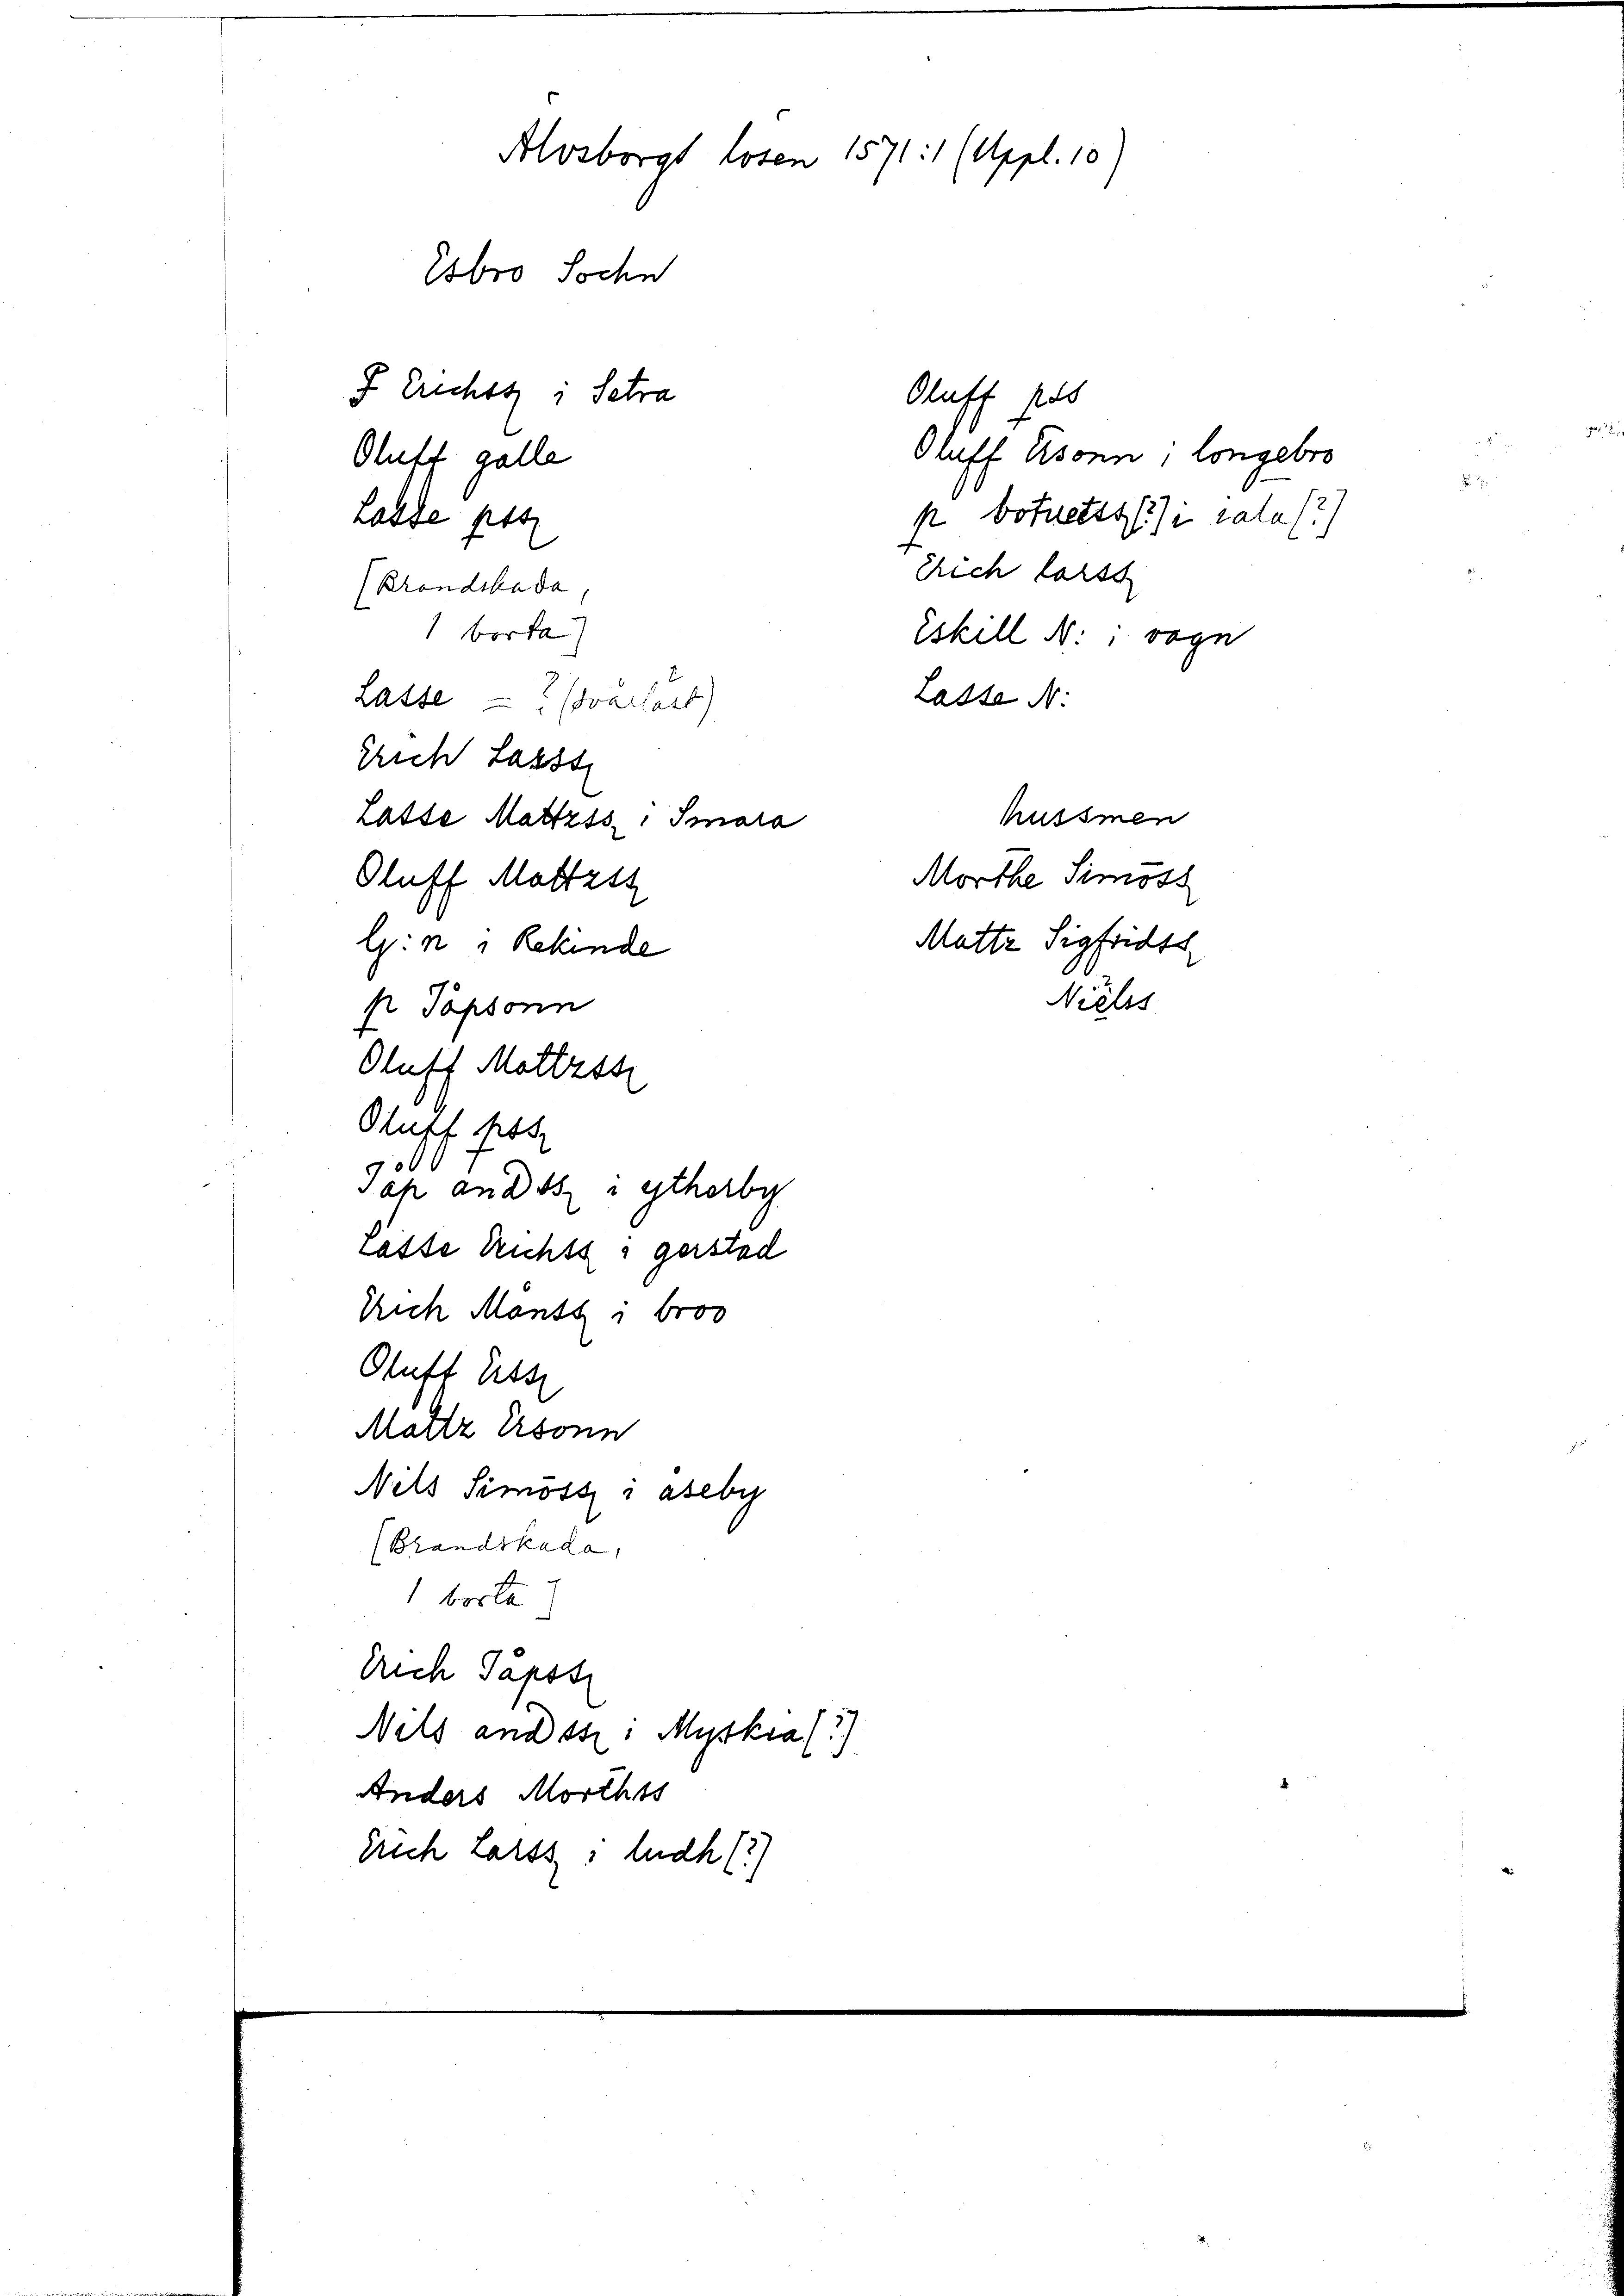 Älvsborgs lösen 1571:1 (Uppl. 10)
Esbro Sochn
J Erichss i Setra
Oluff galle
Lasse pss
(Brandskada,
1 borta)
Lasse = ? (svårläst)
Erich Larss
Lasse Mattzss i Smara
Oluff Mattzss
G:n i Rekinde
p Japsonn
Oluff Mattzss
Oluff pss
Jåp andss i ytherby
Lasse Erichss i gerstad
Erich Månss i broo
Oluff Erss
Mattz Ersonn
Nils Simōss i åseby
(Brandskada,
1 borta)
Erich Jåpss
Nils andss i Myskia (?)
Anders Morthss
Erich Larss i ludh (?)
Oluff pss
Oluff Ersonn i longebro
p (?) i (?)
Erich larss
Eskill N: i vagn
Lasse N:
hussmen
Morthe Simōss
Mattz Sigfridss
Nielss